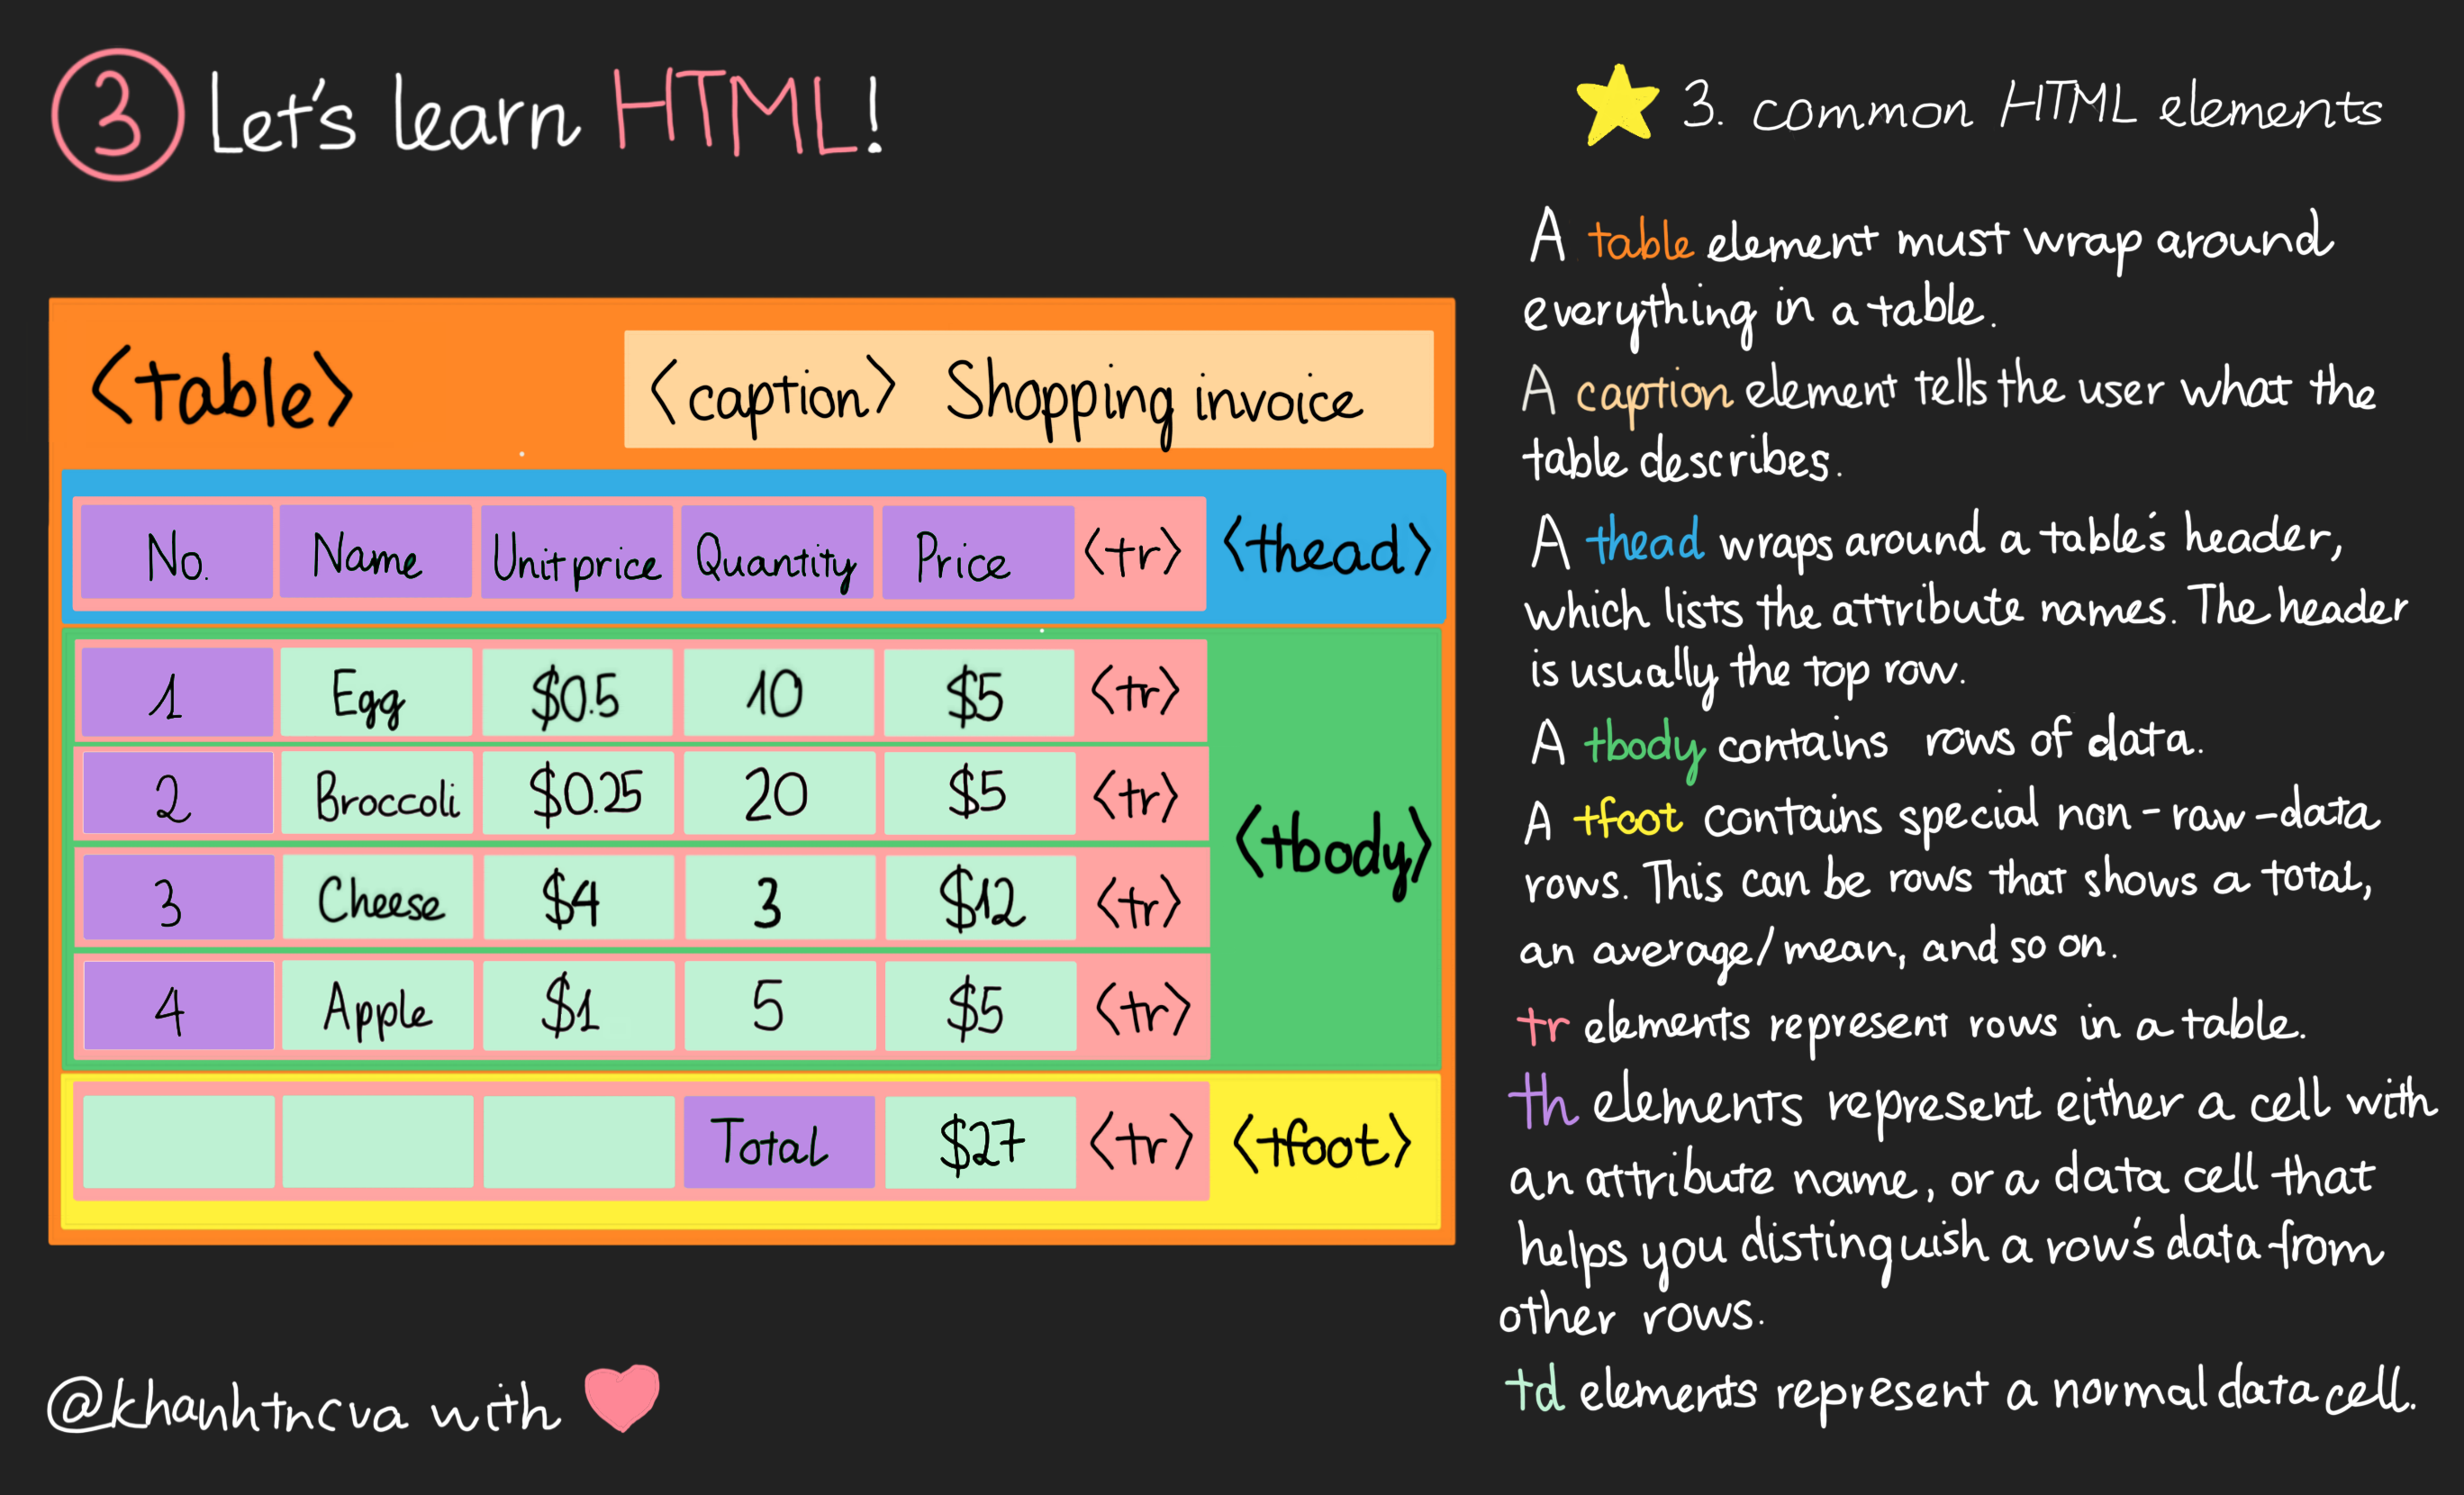 3 Let's learn HTML!
<table>
<caption> Shopping invoice
No. Name Unit price Quantity Price <tr> <thead>
1 Egg $0.5 10 $5 <tr>
2 Broccoli $0.25 20 $5 <tr>
<tbody>
3 Cheese $4 3 $12 <tr>
4 Apple $1 5 $5 <tr>
Total $27 <tr> <tfoot>
@khanhtncva with
3. common HTML elements
A table element must wrap around
everything in a table.
A caption element tells the user what the
table describes.
A thead wraps around a table's header,
which lists the attribute names. The header
is usually the top row.
A tbody contains rows of data.
A tfoot contains special non-raw-data
rows. This can be rows that shows a total,
an average/mean, and so on.
tr elements represent rows in a table.
th elements represent either a cell with
an attribute name, or a data cell that
helps you distinguish a row's data from
other rows.
td elements represent a normal data cell.